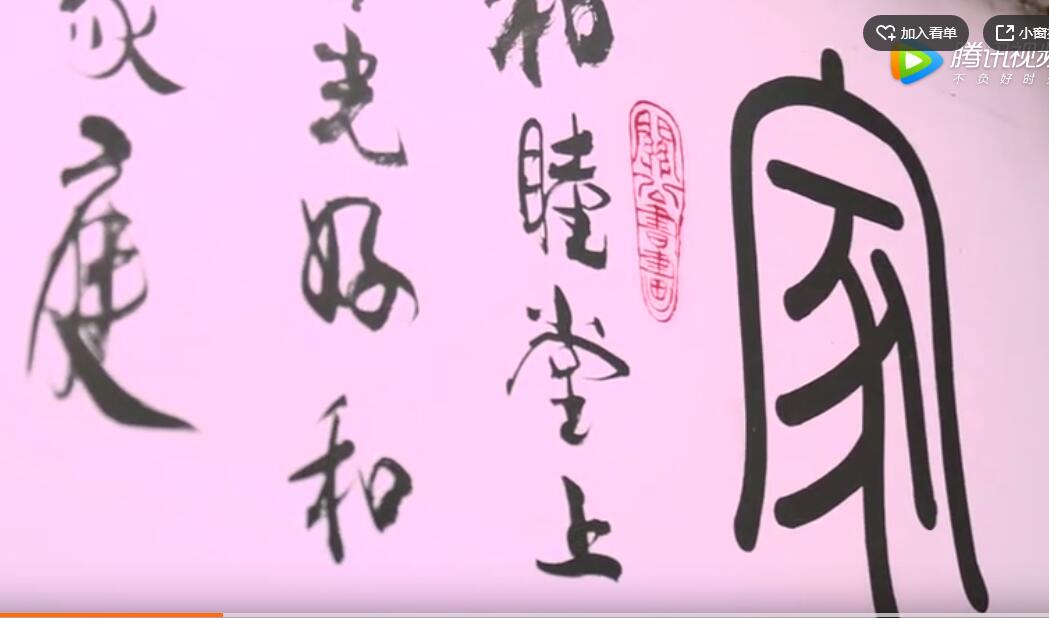 加入看单
小窗
腾讯视频
不负好时
家
和睦堂上
光好和
家庭